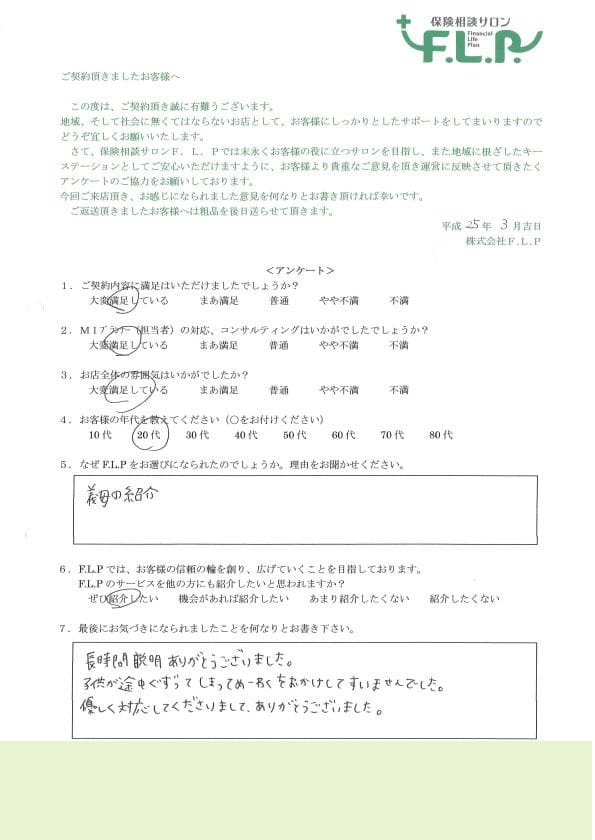 保険相談サロン
Financial
Life
Plan
F.L.P.
ご契約頂きましたお客様へ
この度は、ご契約頂き誠に有難うございます。
地域、そして社会に無くてはならないお店として、お客様にしっかりとしたサポートをしてまいりますので
どうぞ宜しくお願いいたします。
さて、保険相談サロンF．L．Pでは末永くお客様の役に立つサロンを目指し、また地域に根ざしたキー
ステーションとしてご安心いただけますように、お客様より貴重なご意見を頂き運営に反映させて頂きたく
アンケートのご協力をお願いしております。
今回ご来店頂き、お感じになられました意見を何なりとお書き頂ければ幸いです。
ご返送頂きましたお客様へは粗品を後日送らせて頂きます。
平成 25 年 3 月吉日
株式会社F.L.P
＜アンケート＞
1．ご契約内容に満足はいただけましたでしょうか？
大変満足している まあ満足 普通 やや不満 不満
2．MIプランナー（担当者）の対応、コンサルティングはいかがでしたでしょうか？
大変満足している まあ満足 普通 やや不満 不満
3．お店全体の雰囲気はいかがでしたか？
大変満足している まあ満足 普通 やや不満 不満
4．お客様の年代を教えてください（○をお付けください）
10代 20代 30代 40代 50代 60代 70代 80代
5．なぜF.L.Pをお選びになられたのでしょうか。理由をお聞かせください。
義母の紹介
6．F.L.Pでは、お客様の信頼の輪を創り、広げていくことを目指しております。
F.L.Pのサービスを他の方にも紹介したいと思われますか？
ぜひ紹介したい 機会があれば紹介したい あまり紹介したくない 紹介したくない
7．最後にお気づきになられましたことを何なりとお書き下さい。
長時間説明ありがとうございました。
子供が途中ぐずってしまってめーわくをおかけしてすいませんでした。
優しく対応してくださいまして、ありがとうございました。